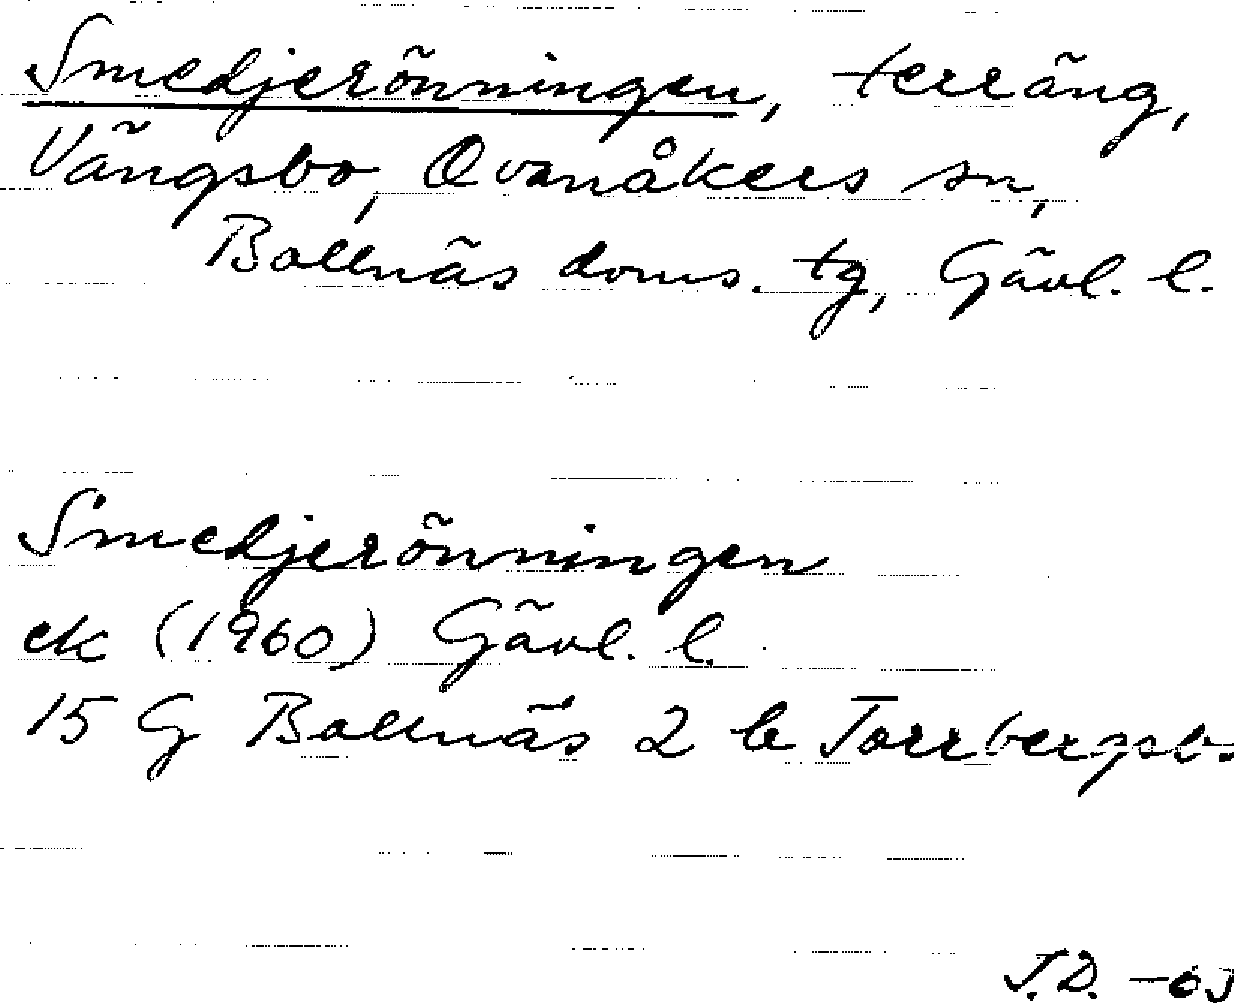 Smedjerönningen, terräng,
Vängsbo, Ovanåkers sn,
Bollnäs doms. tg, Gävl. l.
Smedjerönningen
ek (1960) Gävl. l.
15 G Bollnäs 2 b Torrbergsb.
J.D.